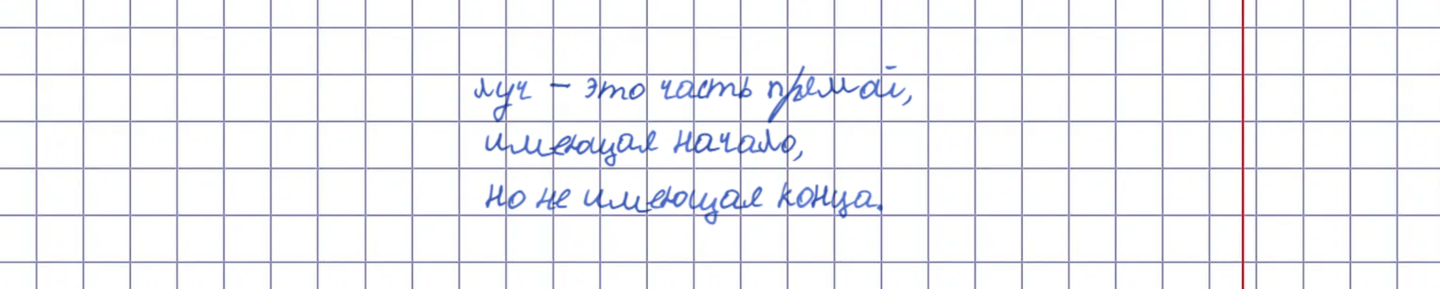 луч – это часть прямой,
имеющая начало,
но не имеющая конца.